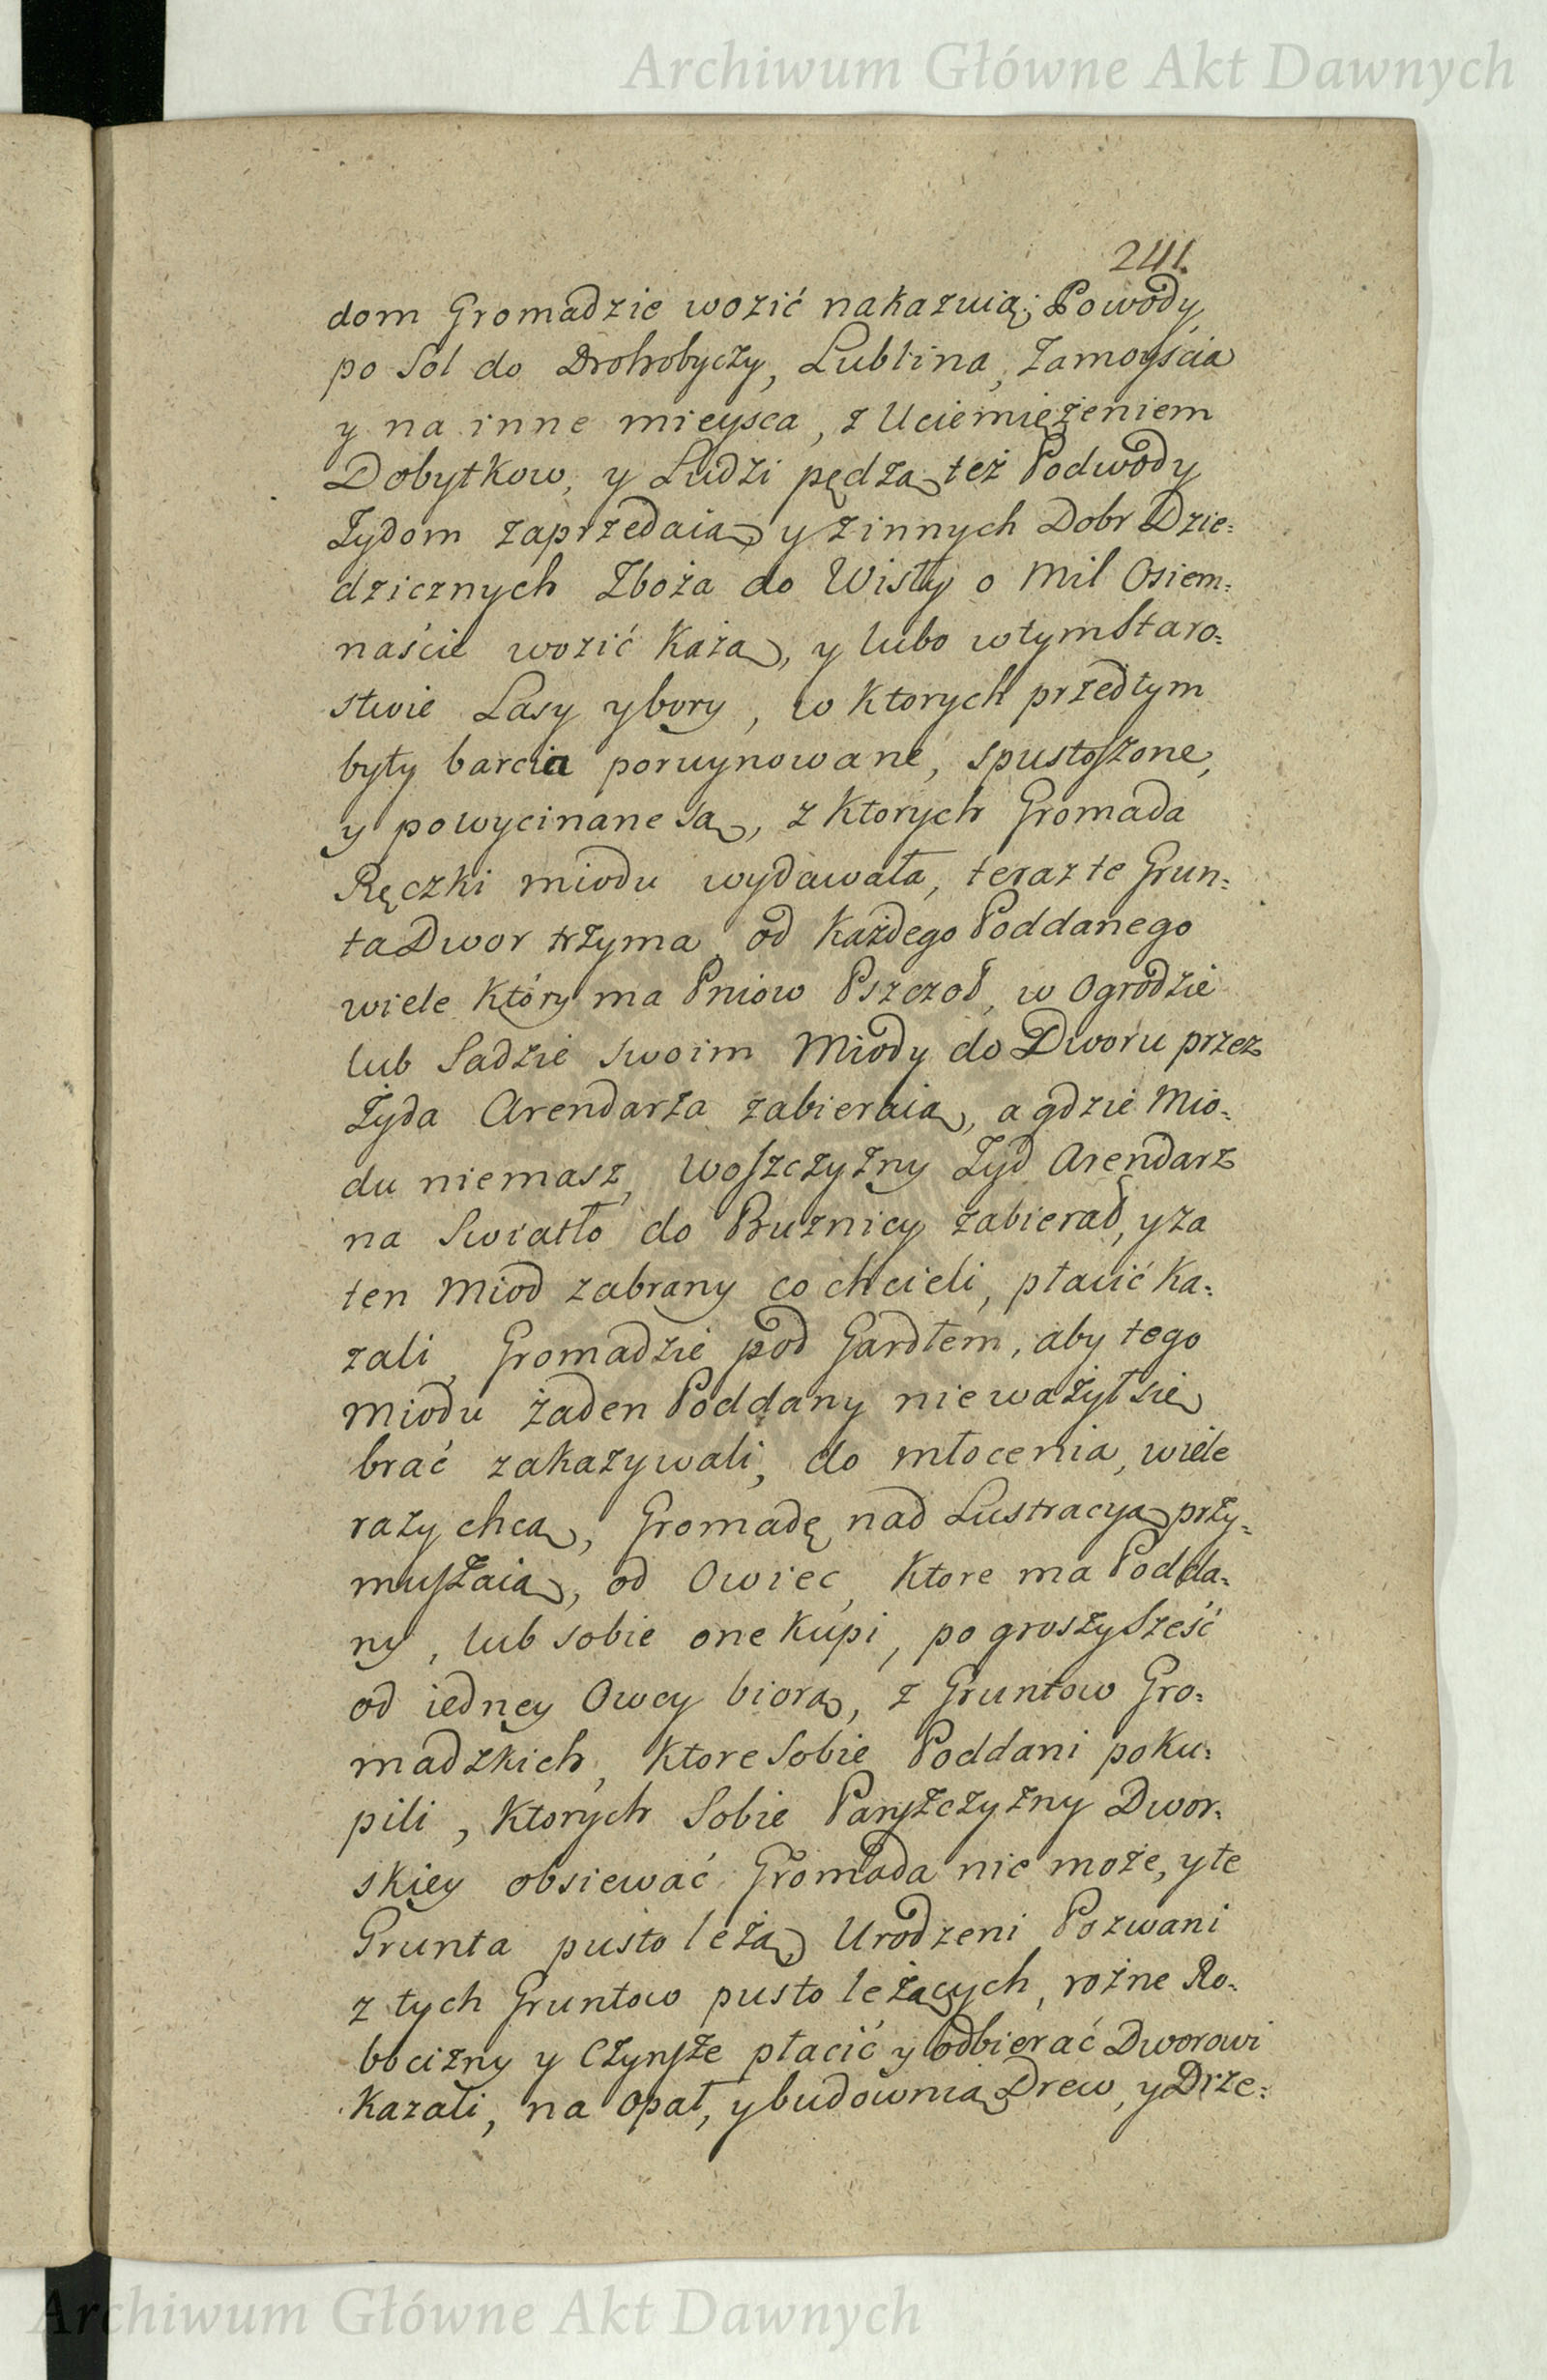 Archiwum Główne Akt Dawnych
241.
dom Gromadzie wozić nakazuią; Powody,
po Sol do Drohobyczy, Lublina, Zamoyścia
y na inne mieysca, z Uciemiężeniem
Dobytkow, y Ludzi pędzą, też Podwody
Żydom zaprzedaią, y z innych Dobr Dzie=
dzicznych Zboża do Wisły o Mil Osiem=
naście wozić Każą, y lubo w tym Staro=
stwie Lasy y bory, w Ktorych przedtym
były barcia poruynowane, spustoszone,
y powycinane są, z Ktorych Gromada
Ręczki miodu wydawała, teraz te Grun=
ta Dwor trzyma, od Każdego Poddanego
wiele Ktory ma Pniow Pszczoł, w Ogrodzie
lub Sadzie swoim Miody do Dworu przez
Żyda Arendarza zabieraią, a gdzie Mio=
du niemasz, Woszczyzny Żyd Arendarz
na Swiatło do Buznicy zabierał, y za
ten Miod zabrany co chcieli, płacić Ka=
zali, Gromadzie pod Gardłem, aby tego
Miodu żaden Poddany nie ważył się
brać zakazywali, do młocenia, wiele
razy chcą, Gromadę nad Lustracyą przy=
muszaią, od Owiec, Ktore ma Podda=
ny, lub sobie one Kupi, po groszy Sześć
od iedney Owcy biorą, z Gruntow Gro=
madzkich, Ktore Sobie Poddani poku=
pili, Ktorych Sobie Panszczyzny Dwor=
skiey obsiewać Gromada nie może, y te
Grunta pusto leżą, Urodzeni Pozwani
z tych Gruntow pusto leżących, rożne Ro=
bocizny y Czynsze płacić y odbierać Dworowi
Kazali, na Opał, y budownią Drew, y Drze=
Archiwum Główne Akt Dawnych